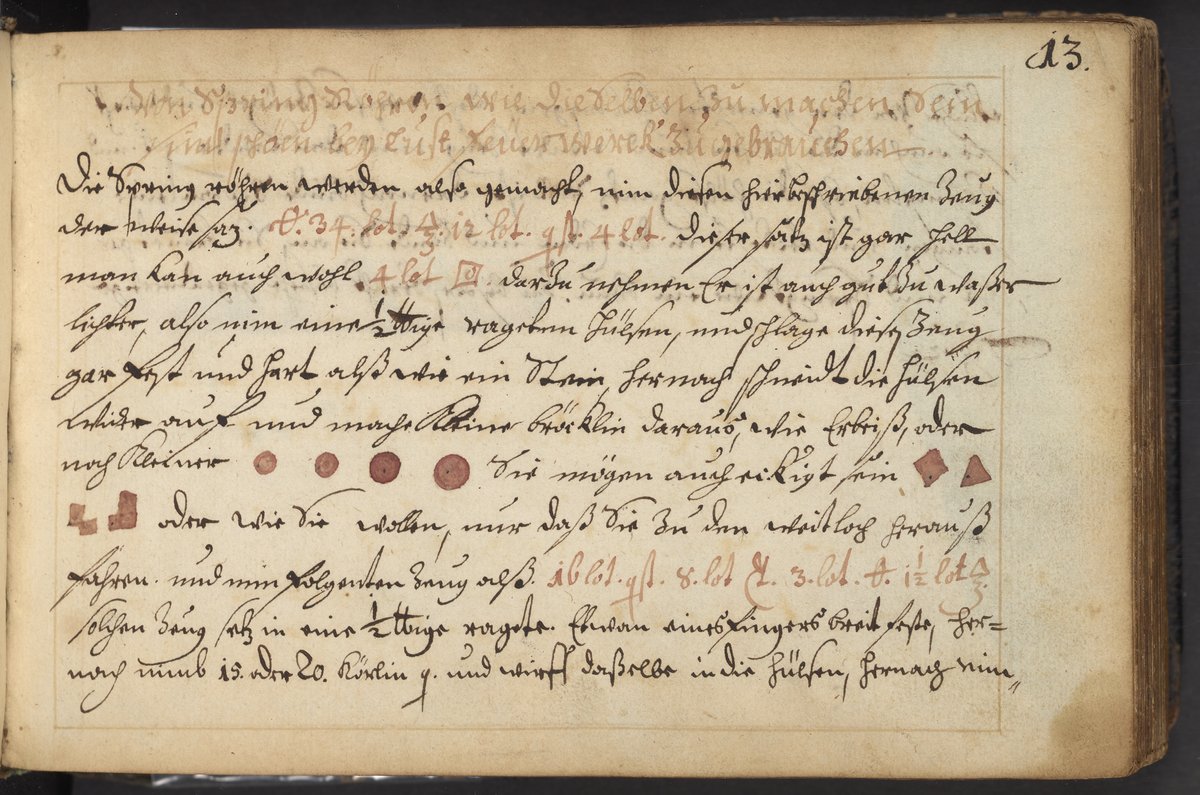 13.
Von Spring Röhren wie dieselben zu machen sein
und schön bey lust feuerwerck zugebrauchen
Die Spring röhren werden also gemacht, nim diesen hierbeschriebenen Zeug
der weise satz. 34. lot. 12 lot. 4 lot. dieser satz ist gar hell
man kan auch wohl 4 lot darzu nehmen Er ist auch gut zu waßer
lichter, also nim eine ½ ℔ige rageten hülsen, und schlage diesen Zeug
gar fest und hart alß wie ein Stein, hernach schneidt die hülsen
wider auf und mache kleine bröcklin darauß, wie Erbeiß, oder
noch kleiner Sie mögen auch eckigt sein
oder wie Sie wollen, nur daß Sie zu den weitloch herauß
fahren. und nim folgenten Zeug alß. 16 lot. 8. lot 3. lot. 1½ lot
solchen Zeug setz in eine ½ ℔ige ragete. Etwan eines fingers breit feste, her=
nach nimb 15. oder 20. körlin und wirff daßelbe in die hülsen, hernach nim